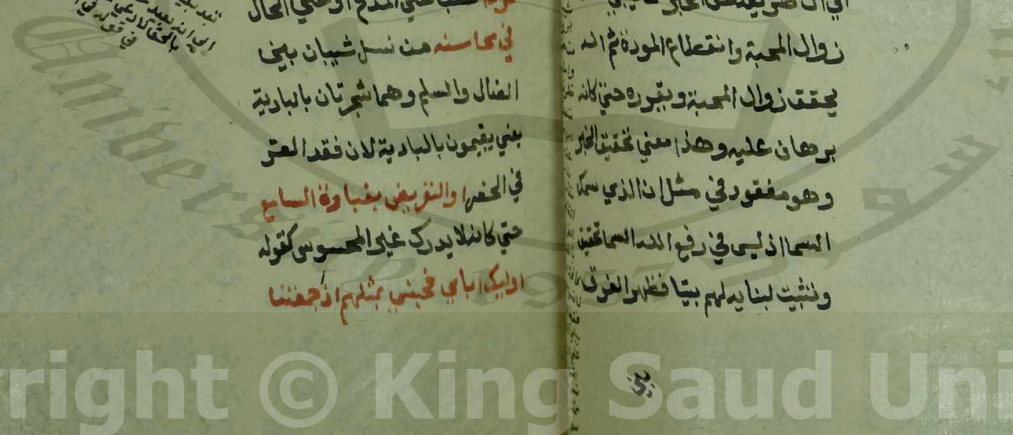 زوال المحبة وانقطاع المودة ثم انه
يحقق زوال المحبة ويقرره حتى كانه
برهان عليه وهذا معنى تحقيق الخبر
وهو مفقود في مثل ان الذي سمك
السما اذ ليس في رفع الله السما تحقيق
وتثبيت لبنايه لهم بيتا فظهر الفرق
في محاسنه من نسل شيبان بين
الضال والسلم وهما شجرتان بالبادية
يعني يقيمون بالبادية لان فقد العز
في الحضر او التعريض بغباوة السامع
حتى كانه لا يدرك غير المحسوس كقوله
اوليك ابايي فجيني بمثلهم اذا جمعتنا
Copyright © King Saud Uni